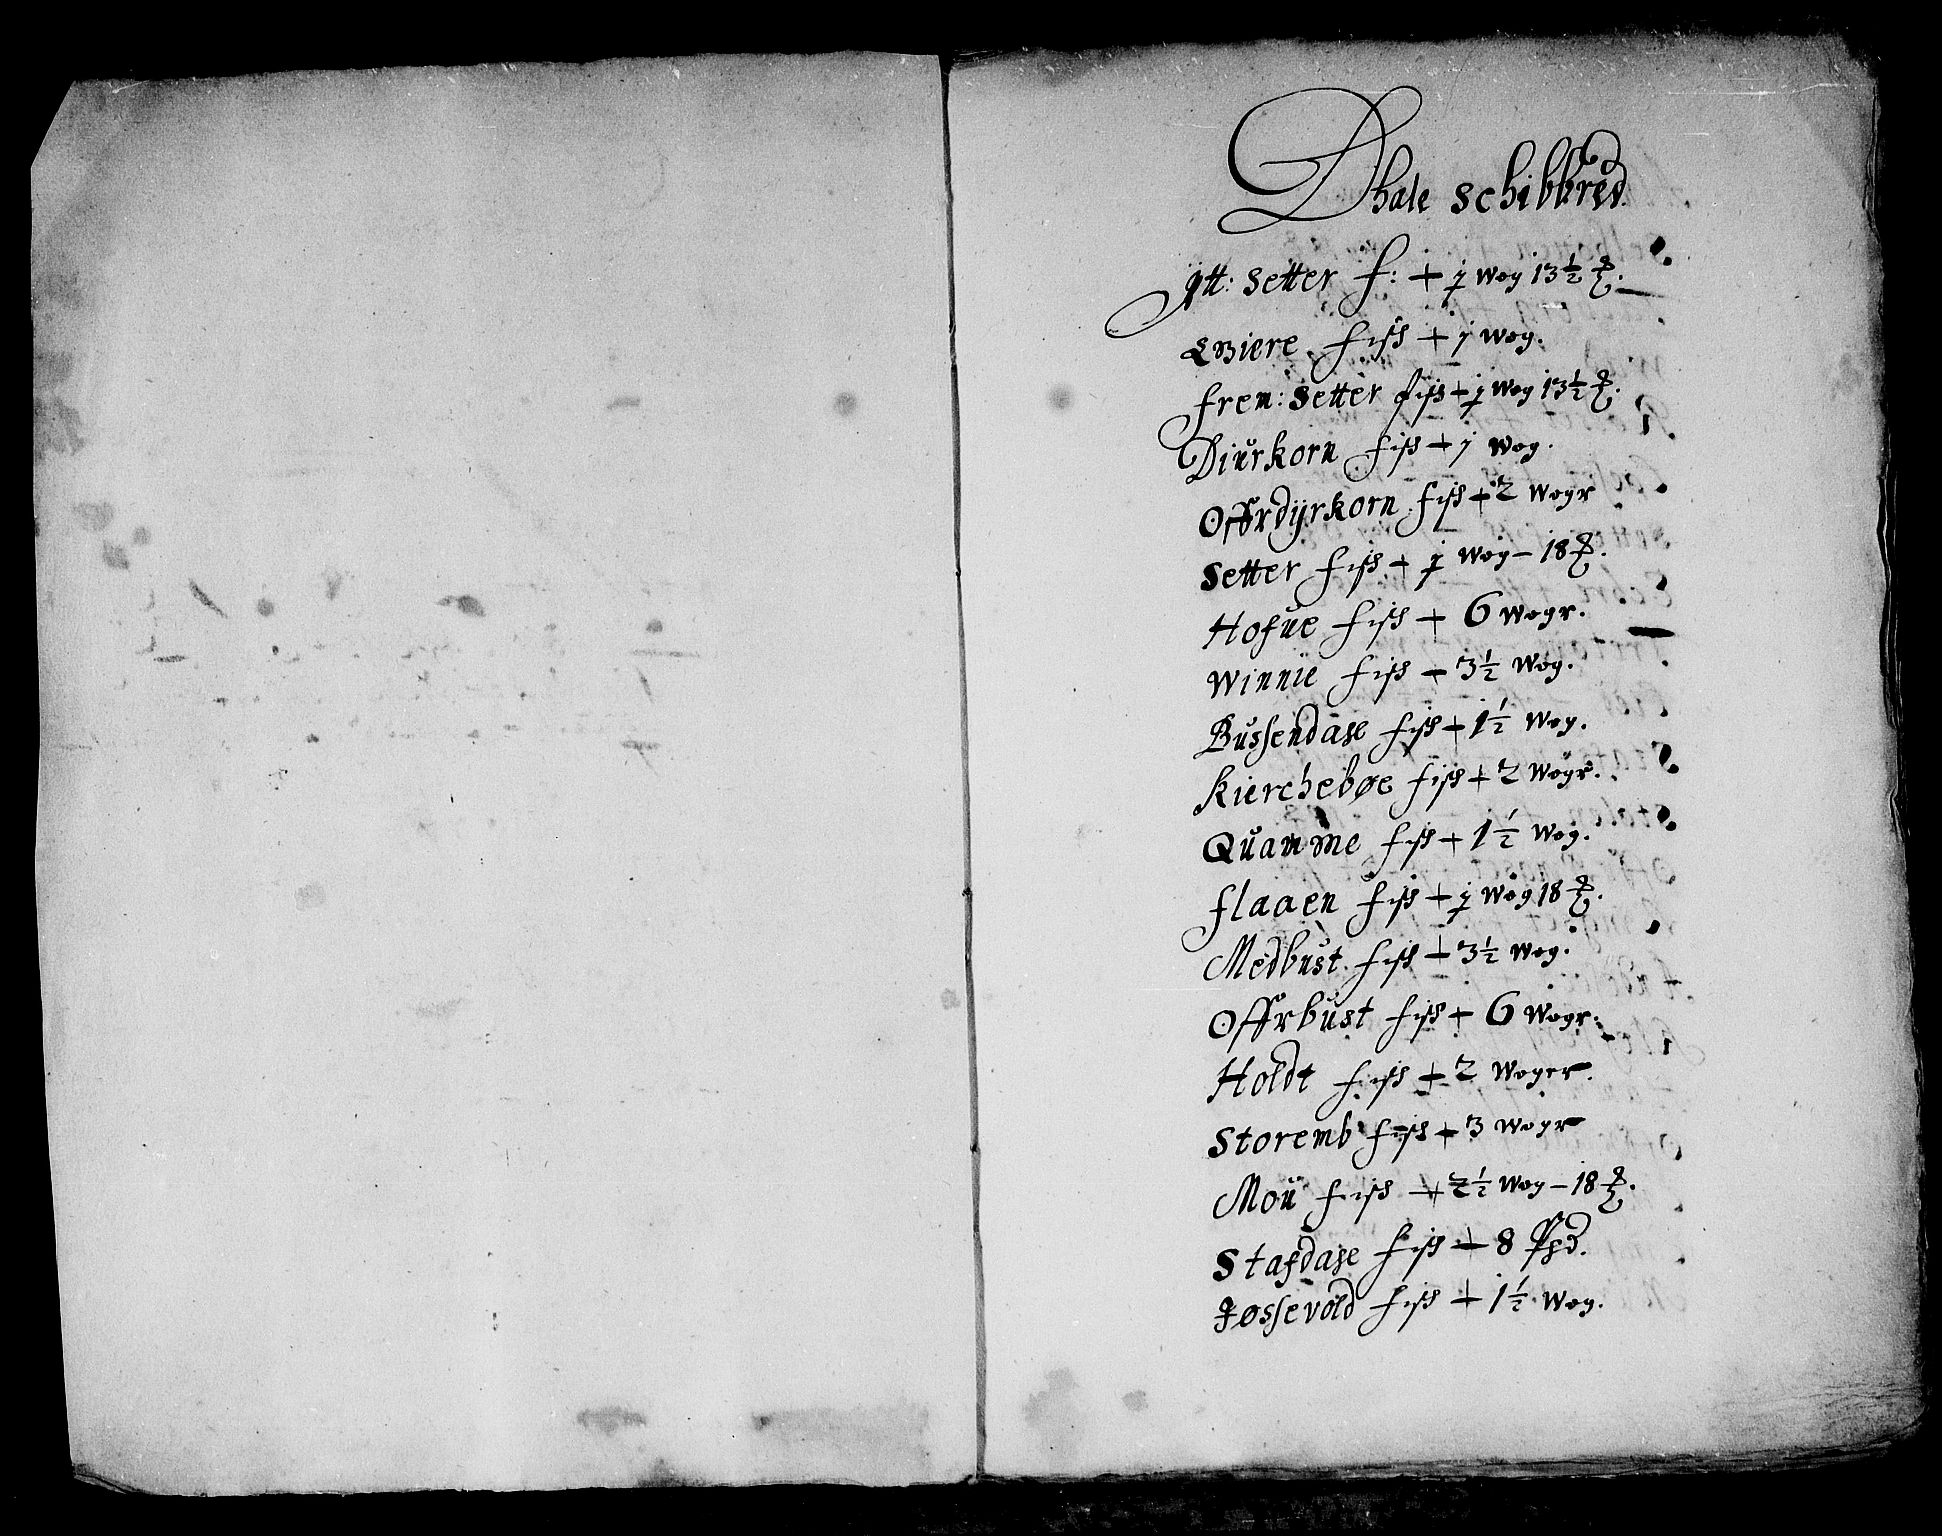 Dhale schibbred
Ytt: Setter f: + ½ Wog 13½ ℔.
Qviere fisk + j Wog.
frem: Setter fisk + ½ Wog 13½ ℔.
Diurkorn fisk + j Wog.
Offrdÿrkorn fisk + 2 Wogr
Setter fisk + ½ Wog – 18 ℔.
Hofue fisk + 6 Wogr.
Winnie fisk + 3½ Wog.
Bussendase fisk + 1½ Wog.
Kierchebøe fisk + 2 Wogr.
Quamme fisk + 1½ Wog.
flaaen fisk + ½ Wog 18 ℔.
Medbust fisk + 3½ Wog.
Offrbust fisk + 6 Wogr.
Holdt fisk + 2 Woger.
Storemb fisk + 3 Wogr
Mou fisk + 2½ Wog – 18 ℔.
Stafdase fisk + 8 Ppd.
Jøssevold fisk + 1½ Wog.